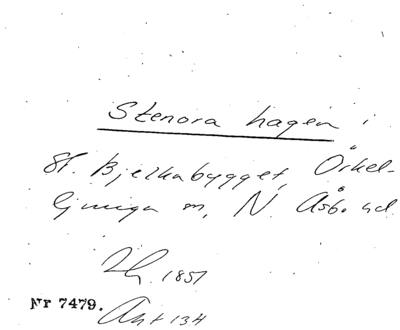 Stenora hagen i
St. Bjelkabygget, Örkel-
ljunga sn, N. Åsbo hd.
1851
Nr 7479.
Akt 134